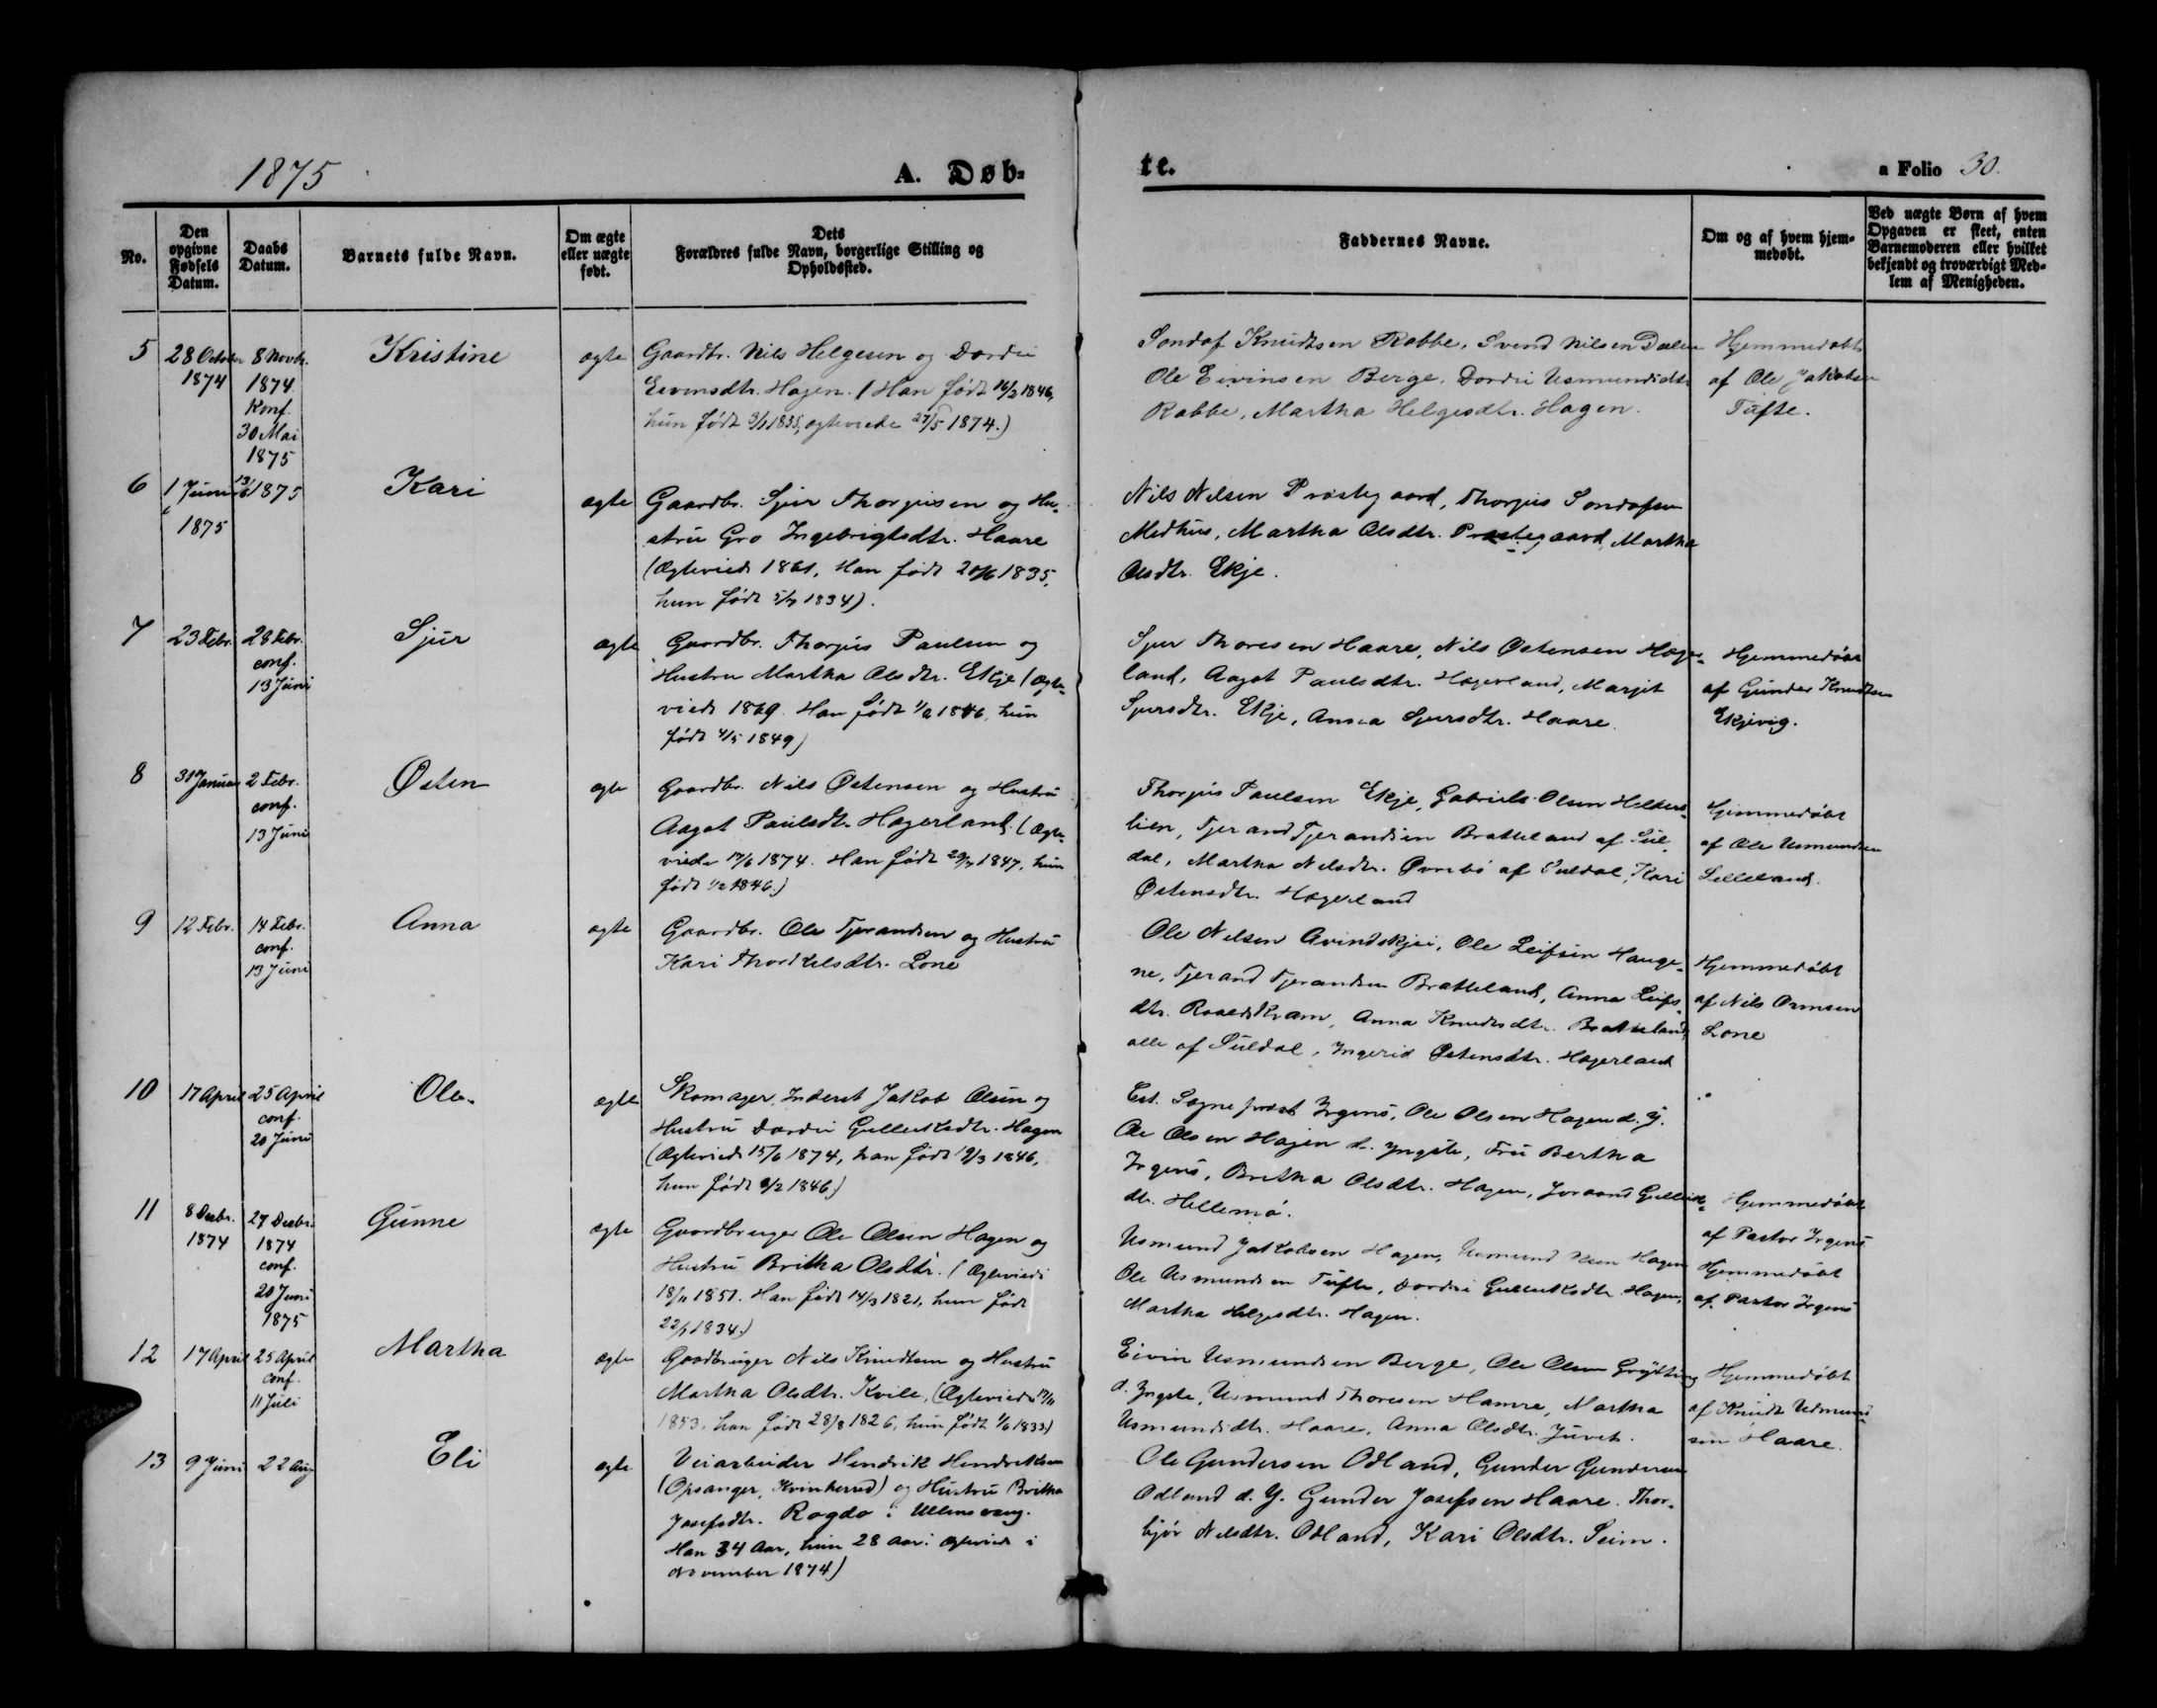 1875
A. Døb-
te.
a Folio 30.
No.
Den opgivne Fødsels Datum.
Daabs Datum.
Barnets fulde Navn.
Om ægte eller uægte født.
Dets Forældres fulde Navn, borgerlige Stilling og Opholdssted.
Faddernes Navne.
Om og af hvem hjem-
medøbt.
Ved uægte Børn af hvem
Opgaven er skeet, enten
Barnemoderen eller hvilket
bekjendt og troværdigt Med-
lem af Menigheden.
5
28 October
1874
8 Novbr.
1874
Konf.
30 Mai
1875
Kristine
ægte
Gaardbr. Nils Helgesen og Dordei
Eivinsdtr. Hagen. (Han født 16/2 1846,
hun født 1835, ægteviede 27/5 1874.)
Sondof Knudtsen Rabbe, Svend Nilsen Dalen
Ole Eivinsen Berge, Dordei Usmundsdtr
Rabbe, Martha Helgesdtr. Hagen.
Hjemmedøbt
af Ole Jakobsen
Tufte.
6
1 Juni
1875
13/6 1875
Kari
ægte
Gaardbr. Sjur Thorjusen og Hu-
stru Gro Ingebrigtsdtr. Haare
(Ægteviede 1861, Han født 20/6 1835,
hun født 5/7 1834).
Nils Nilsen Præstegaard, Thorjus Sondofsen
Midthus, Martha Olsdtr. Præstegaard, Martha
Olsdtr. Ekje.
7
23 Febr.
28 Febr.
conf.
13 Juni
Sjur
ægte
Gaardbr. Thorjus Paulsen og
Hustru Martha Olsdtr. Ekje (Ægte-
viede 1869. Han født 1/2 1846, hun
født 4/5 1849)
Sjur Thoresen Haare, Nils Østensen Hager-
land, Aagot Paulsdtr. Hagerland, Marjit
Sjursdtr. Ekje, Anna Sjursdtr. Haare.
Hjemmedøbt
af Gunder Knudtsen
Ekjevig.
8
31 Januar
2 Febr.
conf.
13 Juni
Østen
ægte
Gaardbr. Nils Østensen og Hustru
Aagot Paulsdtr. Hagerland. (Ægte-
viede 17/6 1874. Han født 29/7 1847, hun
født 1/2 1846.)
Thorjus Paulsen Ekje, Gabriels Olsen
lien, Tjerand Tjerandsen Bratteland af Sul-
dal, Martha Nilsdtr. Øvrebø af Suldal, Kari
Østensdtr. Hagerland
Hjemmedøbt
af Ole Usmundsen
Lilleland.
9
12 Febr.
14 Febr.
conf.
13 Juni
Anna
ægte
Gaardbr. Ole Tjerandsen og Hustru
Kari Thorkelsdtr. Lone
Ole Nilsen Gvindskjei, Ole Leifsen Hauge-
ne, Tjerand Tjerandsen Bratteland, Anna Leifs-
dtr. Roaldskvam, Anna Knudsdtr. Bratteland,
alle af Suldal, Ingerid Østensdtr. Hagerland
Hjemmedøbt
af Nils Ormsen
Lone
10
17 April
25 April
conf.
20 Juni
Ole.
ægte
Skomager, Inderst Jakob Olsen og
Hustru Dordei Gulleiksdtr. Hagen
(Ægteviede 15/6 1874, han født 19/3 1846,
hun født 8/2 1846.)
Est. Sognepræst Irgens, Ole Olsen Hagen d. Y.
Ole Olsen Hagen d. Yngste, Fru Bertha
Irgens, Britha Olsdtr. Hagen, Joraand Gulleiks-
dtr. Hellemo.
Hjemmedøbt
af Pastor Irgens
11
8 Decbr.
1874
27 Decbr.
1874
conf.
20 Juni
1875
Gunne
ægte
Gaardbruger Ole Olsen Hagen og
Hustru Britha Olsdtr. (Ægteviede
18/11 1851. Han født 14/3 1821, hun født
22/7 1834.)
Usmund Jakobsen Hagen, Usmund Olsen Hagen
Ole Usmundsen Tufte, Dordei Gulleiksdtr. Hagen,
Martha Helgesdtr. Hagen.
Hjemmedøbt
af Pastor Irgens
12
17 April
25 April
conf.
11 Juli
Martha
ægte
Gaardbruger Nils Knudtsen og Hustru
Martha Olsdtr. Kvile, (Ægteviede 17/11
1853, han født 28/8 1826, hun født 1/6 1833)
Eivin Usmundsen Berge, Ole Olsen Grytting
d. Yngste, Usmund Thoresen Hamre, Martha
Usmundsdtr. Haare, Anna Olsdtr. Juvet.
Hjemmedøbt
af Knudt Usmund-
sen Haare.
13
9 Juni
22 Aug
Eli
ægte
Veiarbeider Hendrik Hendriksen
(Opsanger, Kvinherred) og Hustru Britha
Josefsdtr. Rogdo i Ullensvang.
Han 34 Aar, hun 28 Aar: Ægteviede i
November 1874)
Ole Gundersen Odland, Gunder Gundersen
Odland d. Y. Gunder Josefsen Haare. Thor-
bjør Nilsdtr. Odland, Kari Olsdtr. Seim.